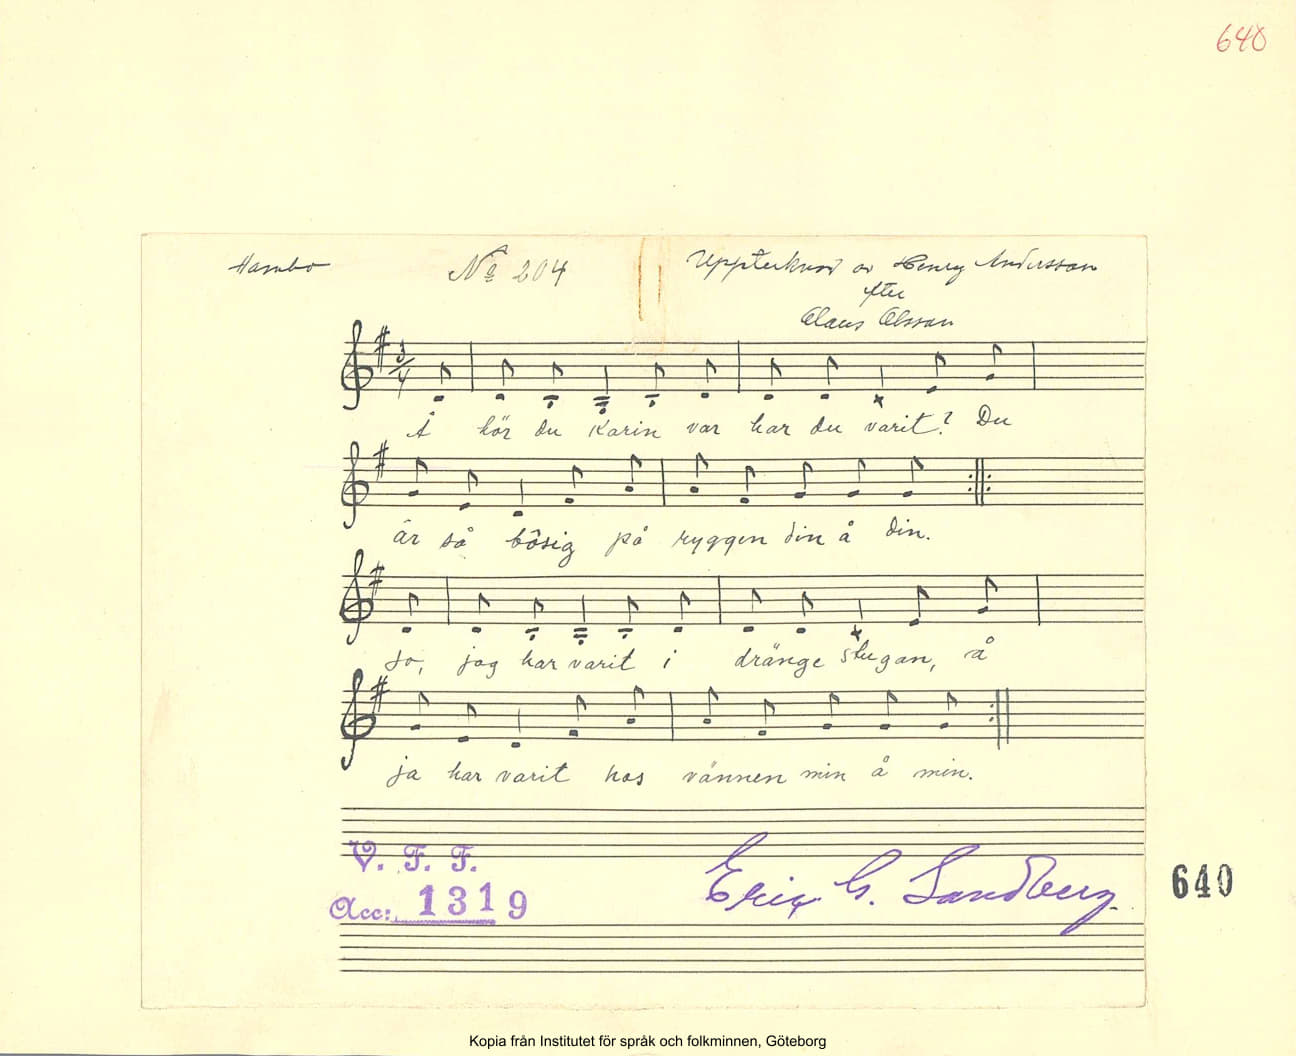 640
Hambo № 204 Upptecknad av Henry Andersson
efter
Claus Olsson
3/4
Å hör du Karin var har du varit? Du
är så bösig på ryggen din å din.
Jo, jag har varit i dränge stugan, å
ja har varit hos vännen min å min.
V. F. F.
Acc: 1319
Eric G. Sandberg.
640
Kopia från Institutet för språk och folkminnen, Göteborg